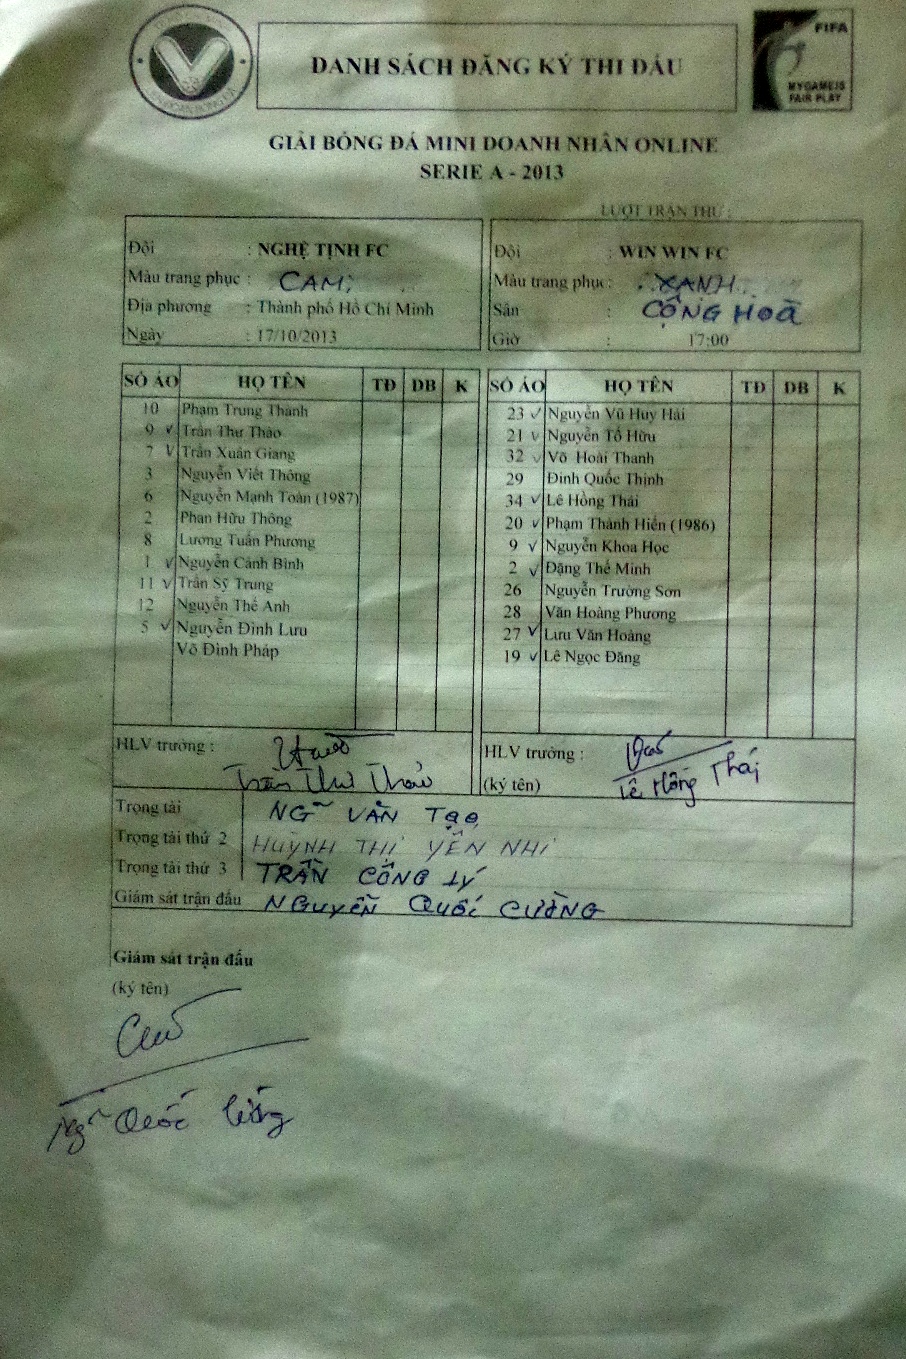 DANH SÁCH ĐĂNG KÝ THI ĐẤU
FIFA
MY GAME IS
FAIR PLAY
GIẢI BÓNG ĐÁ MINI DOANH NHÂN ONLINE
SERIE A - 2013
LƯỢT TRẬN THỨ :
Đội : NGHỆ TỊNH FC
Màu trang phục : CAM
Địa phương : Thành phố Hồ Chí Minh
Ngày : 17/10/2013
Đội : WIN WIN FC
Màu trang phục : XANH
Sân : CỘNG HOÀ
Giờ : 17:00
SỐ ÁO HỌ TÊN TĐ DB K
10 Phạm Trung Thành
9 ✓ Trần Thư Thảo
7 ✓ Trần Xuân Giang
3 Nguyễn Viết Thông
6 Nguyễn Mạnh Toàn (1987)
2 Phan Hữu Thông
8 Lương Tuấn Phương
1 ✓ Nguyễn Cảnh Bình
11 ✓ Trần Sỹ Trung
12 Nguyễn Thế Anh
5 ✓ Nguyễn Đình Lưu
Võ Đình Pháp
SỐ ÁO HỌ TÊN TĐ DB K
23 ✓ Nguyễn Vũ Huy Hải
21 ✓ Nguyễn Tố Hữu
32 ✓ Võ Hoài Thanh
29 Đinh Quốc Thịnh
34 ✓ Lê Hồng Thái
20 ✓ Phạm Thành Hiển (1986)
9 ✓ Nguyễn Khoa Học
2 ✓ Đặng Thế Minh
26 Nguyễn Trường Sơn
28 Văn Hoàng Phương
27 ✓ Lưu Văn Hoàng
19 ✓ Lê Ngọc Đăng
HLV trưởng :
Trần Thư Thảo
HLV trưởng :
(ký tên) Lê Hồng Thái
Trọng tài NG~ VĂN TẠO
Trọng tài thứ 2 HUỲNH THỊ YẾN NHI
Trọng tài thứ 3 TRẦN CÔNG LÝ
Giám sát trận đấu NGUYỄN QUỐC CƯỜNG
Giám sát trận đấu
(ký tên)
Ng~ Quốc Cường